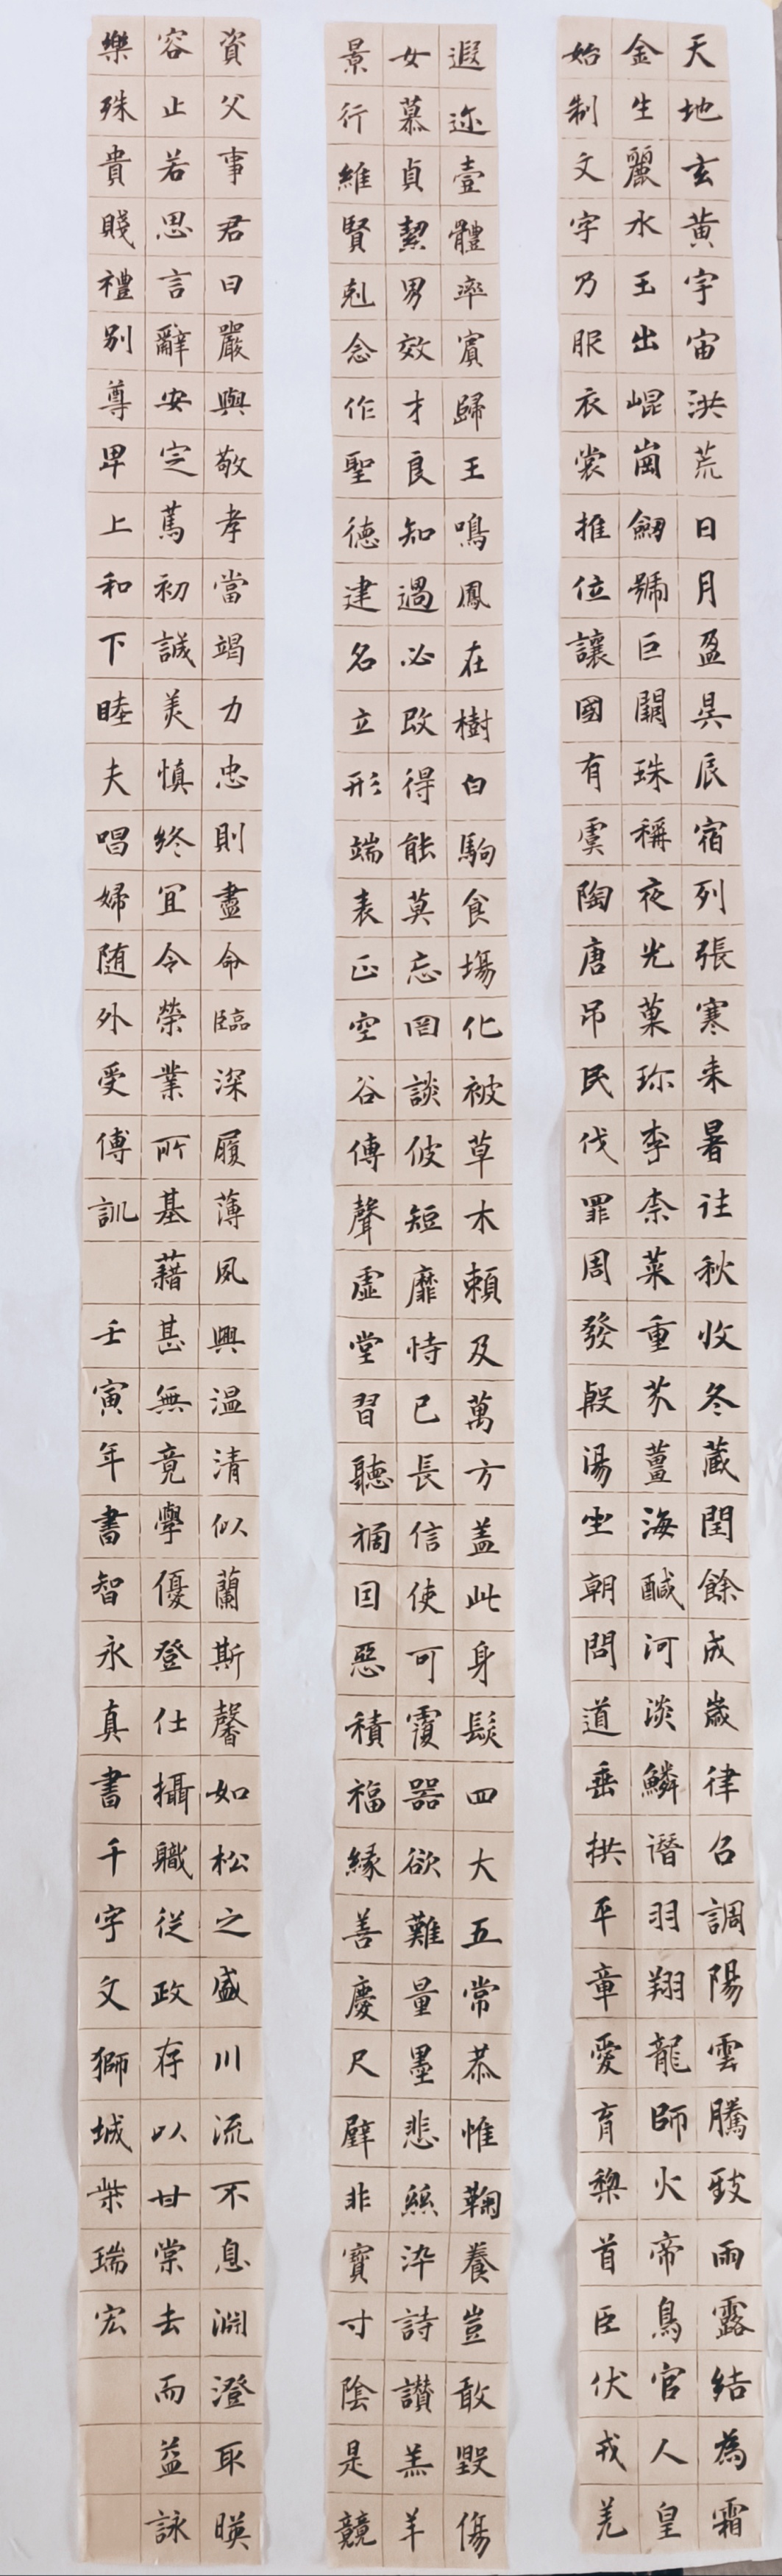 天地玄黄宇宙洪荒日月盈昃辰宿列張寒来暑往秋收冬蔵閏餘成歲律召調陽雲騰致雨露結為霜
金生麗水玉出崐崗劒號巨闕珠稱夜光菓珎李柰菜重芥薑海鹹河淡鱗潛羽翔龍師火帝鳥官人皇
始制文字乃服衣裳推位讓國有虞陶唐弔民伐罪周發殷湯坐朝問道垂拱平章愛育黎首臣伏戎羌
遐迩壹體率賓歸王鳴鳳在樹白駒食場化被草木賴及萬方盖此身髮四大五常恭惟鞠養豈敢毀傷
女慕貞絜男效才良知過必改得能莫忘罔談彼短靡恃己長信使可覆器欲難量墨悲絲染詩讃羔羊
景行維賢剋念作聖德建名立形端表正空谷傳聲虛堂習聽禍因惡積福緣善慶尺璧非寶寸陰是競
資父事君曰嚴與敬孝當竭力忠則盡命臨深履薄夙興温清似蘭斯馨如松之盛川流不息淵澄取暎
容止若思言辭安定篤初誠美慎終宜令榮業所基藉甚無竟學優登仕攝職從政存以甘棠去而益詠
樂殊貴賤禮別尊卑上和下睦夫唱婦随外受傅訓 壬寅年書智永真書千字文獅城柴瑞宏